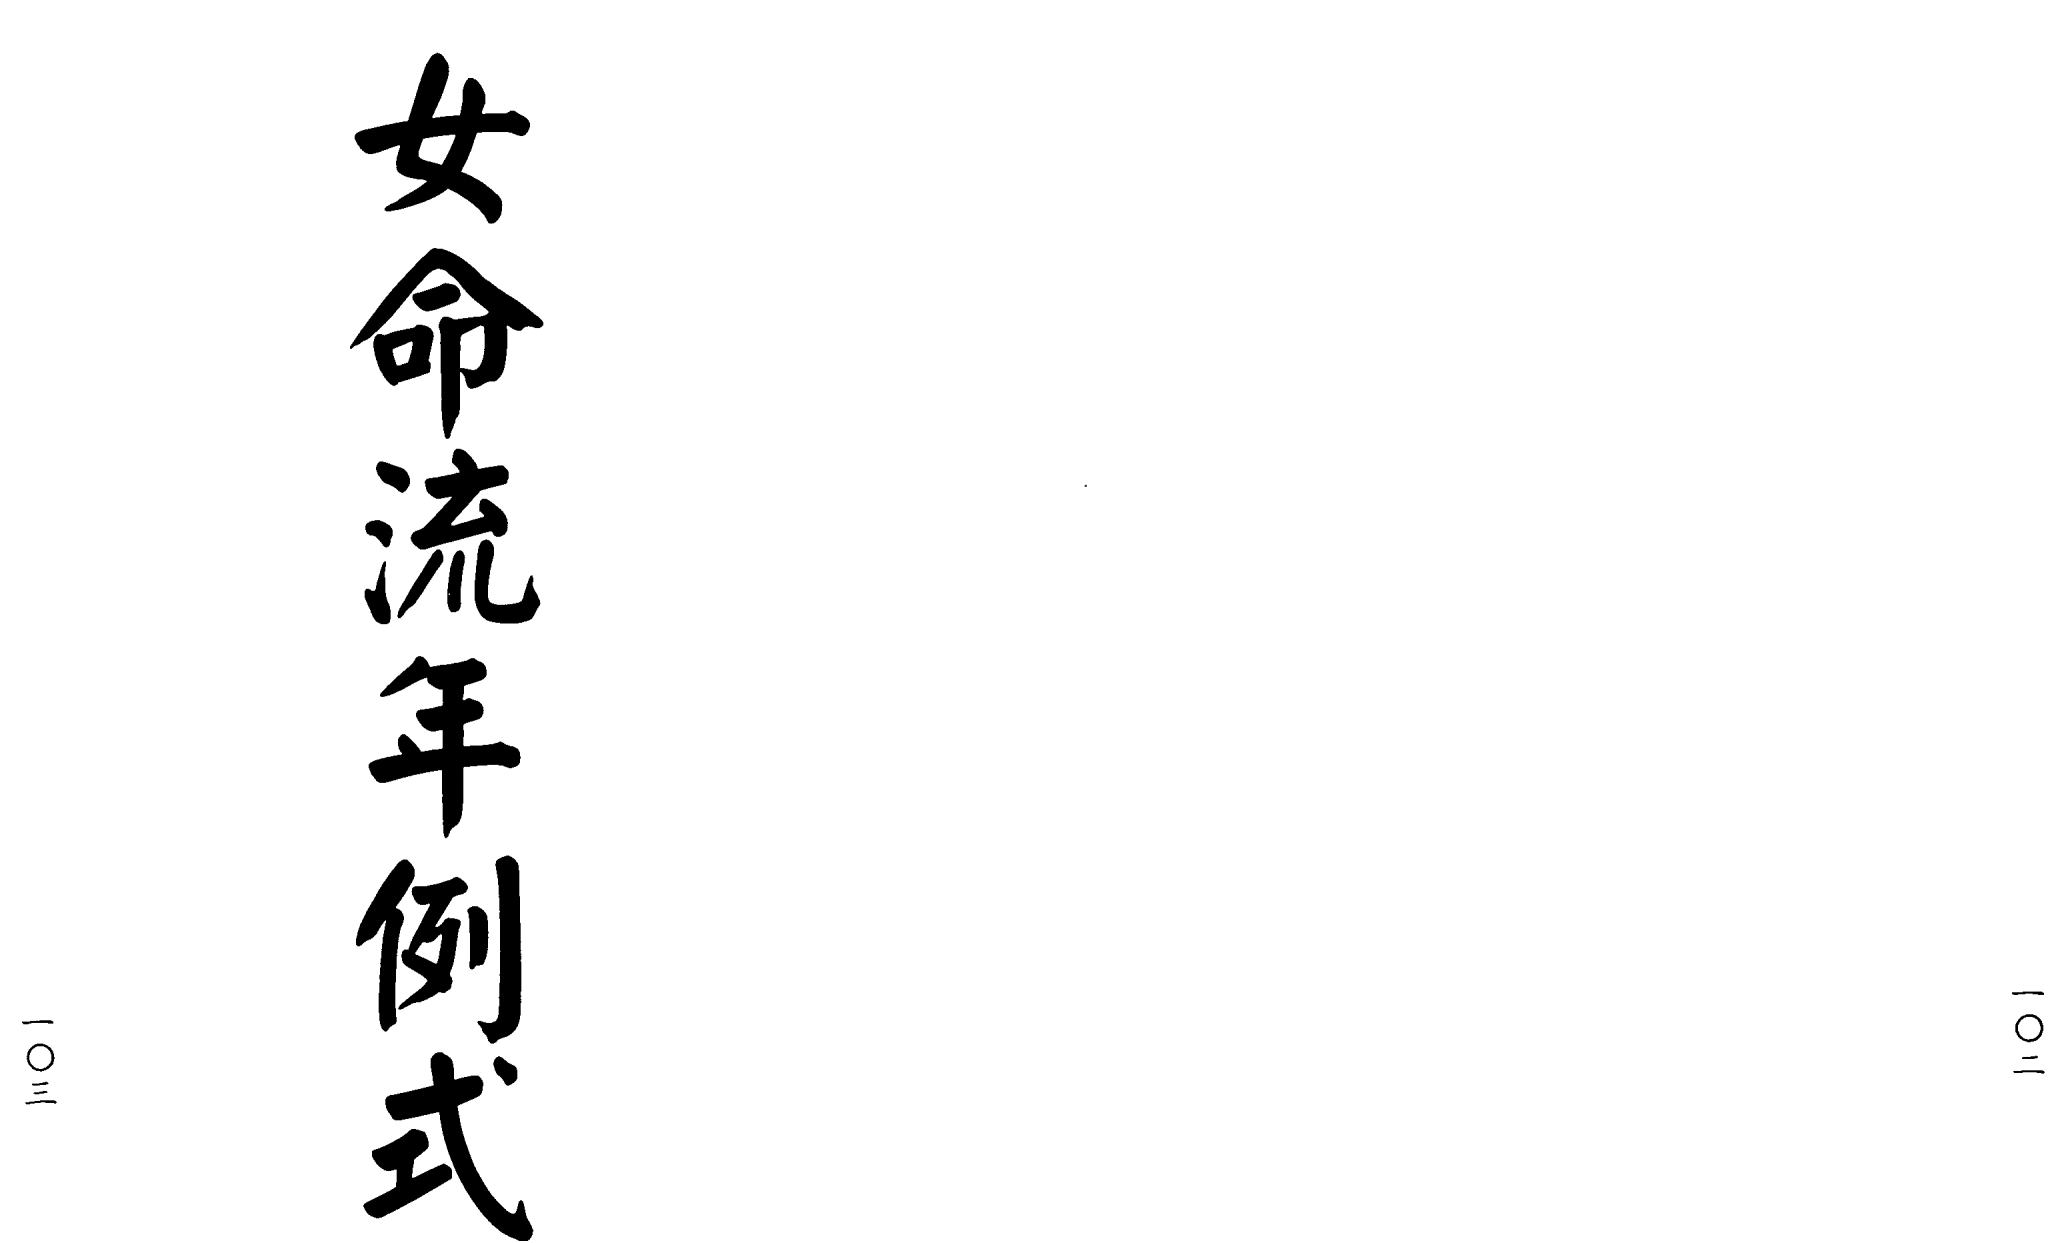 一〇二
女命流年例式
一〇三